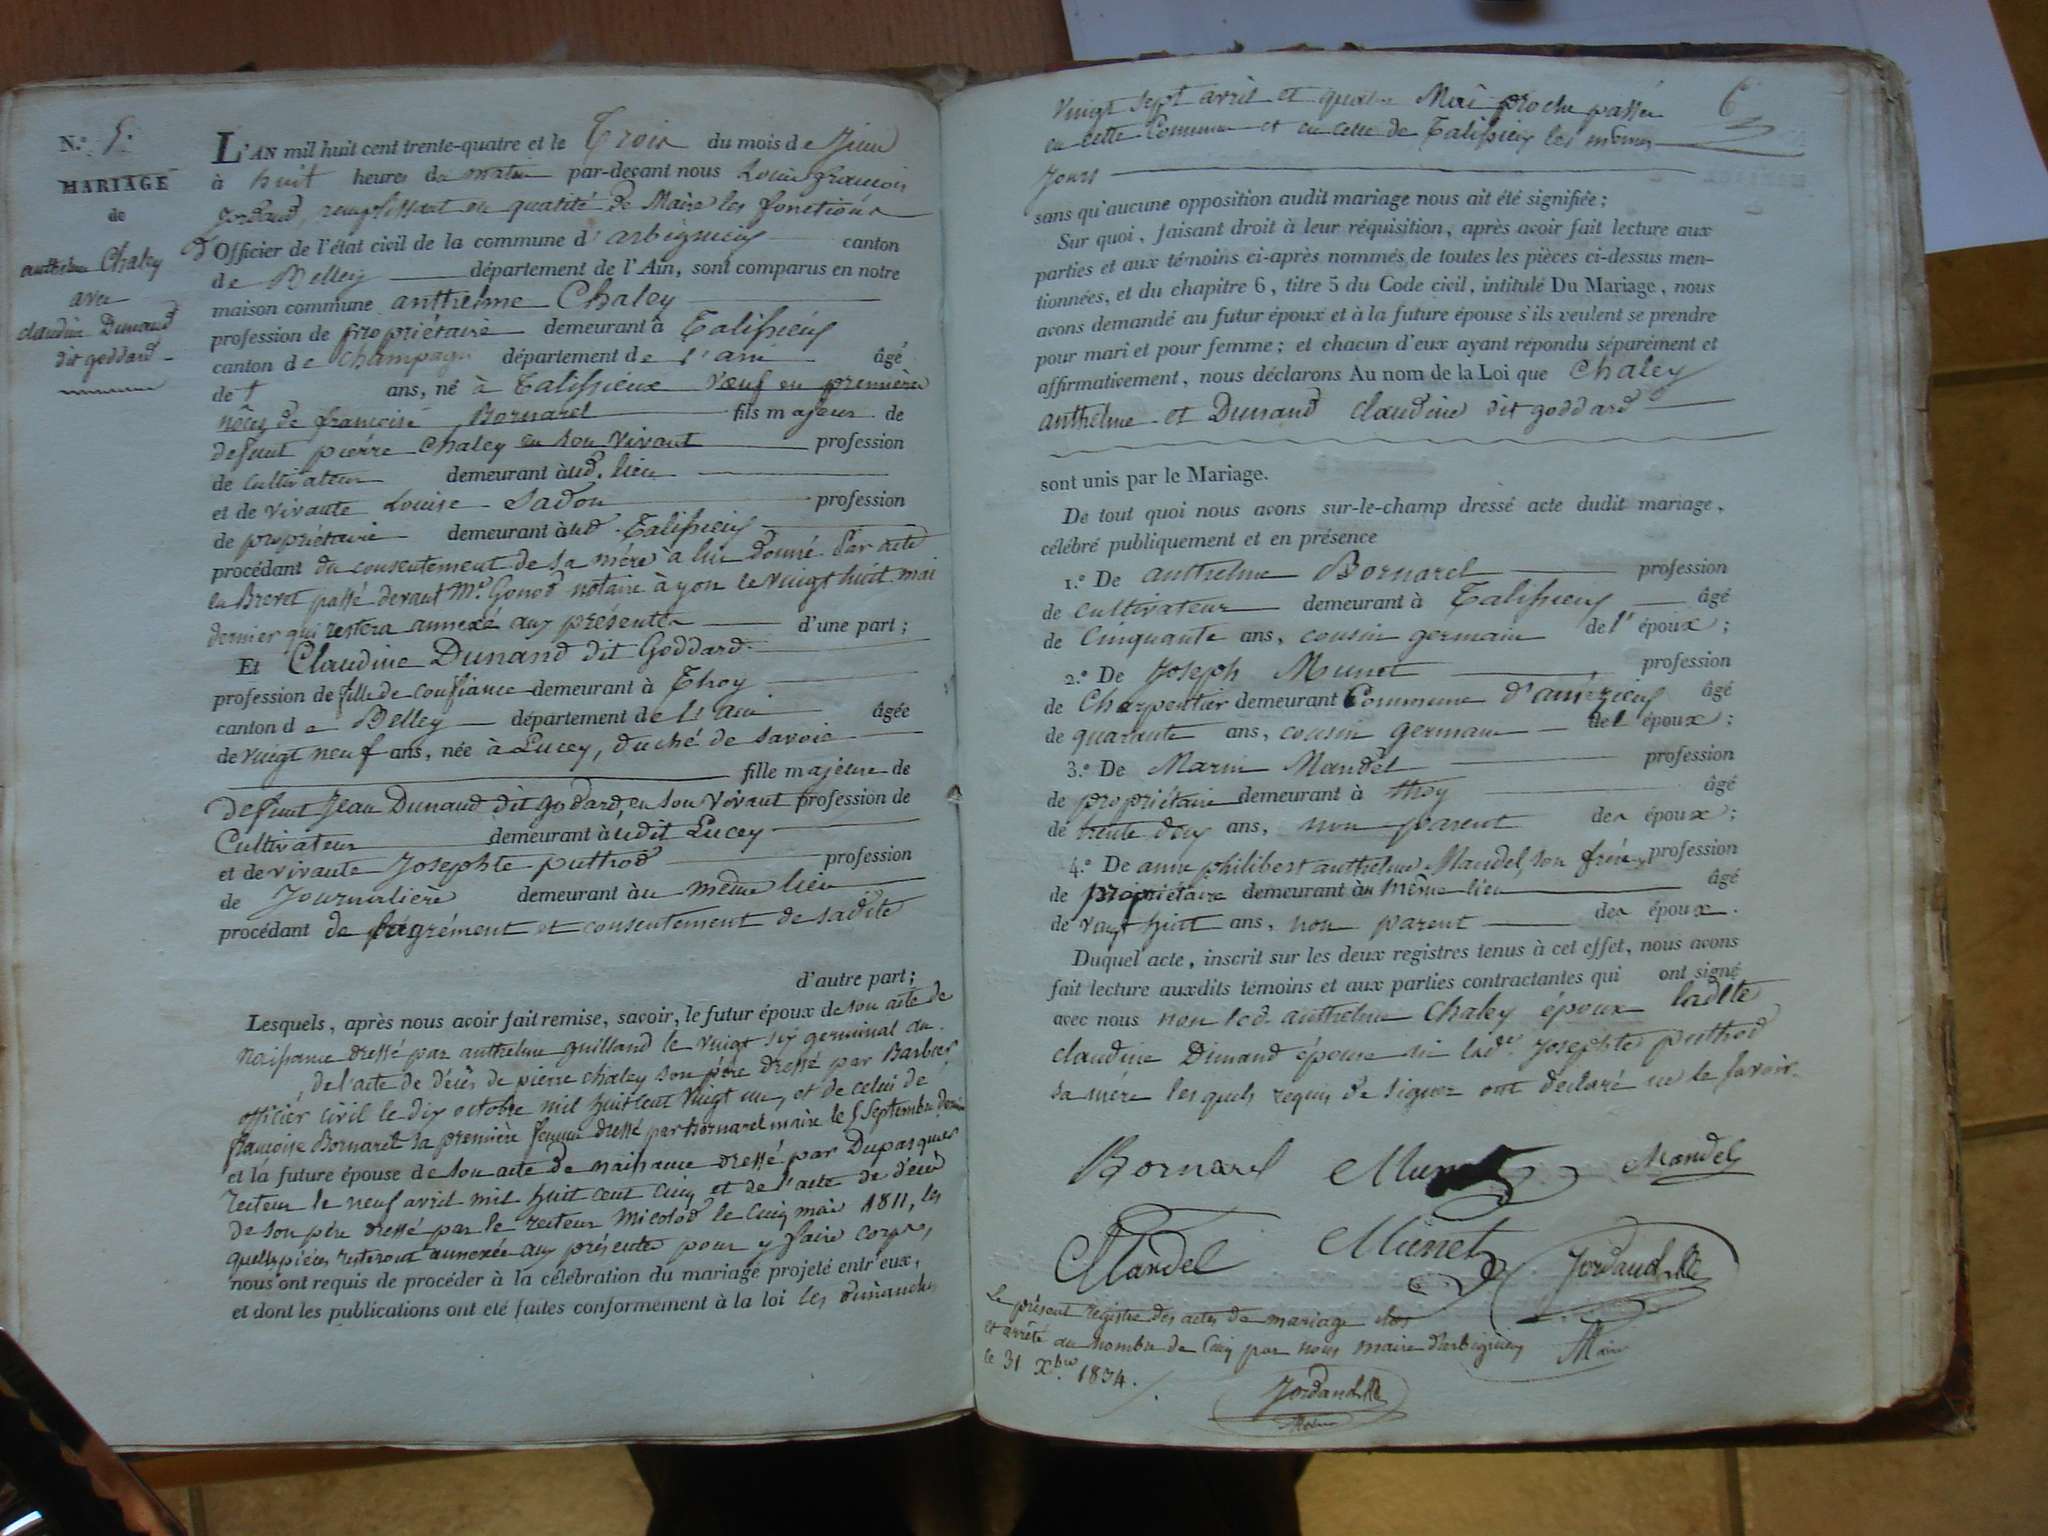 N.o 5.
MARIAGE
de
anthelme Chaley
avec
claudine Dunand
dit goddard
L'AN mil huit cent trente-quatre et le Trois du mois de Juin
à huit heures du matin par-devant nous Louis françois
Jordand, remplissant en qualité de Maire les fonctions
d'Officier de l'état civil de la commune d'arbignieu canton
de Belley département de l'Ain, sont comparus en notre
maison commune anthelme Chaley
profession de propriétaire demeurant à Talissieu
canton de Champagne département de l'ain âgé
de † ans, né à Talissieux Vœuf en premières
nôces de françoise Bornarel fils majeur de
défunt pierre Chaley en son vivant profession
de Cultivateur demeurant àud. lieu
et de vivante Louise Sadou profession
de propriétaire demeurant àud Talissieu
procédant du consentement de sa mère à lui donné Par acte
en Brevet passé devant Me. Gonod notaire à yon le vingt huit mai
dernier qui restera annexé aux présentes d'une part;
Et Claudine Dunand dit Goddard
profession de fille de confiance demeurant à Thoy
canton de Belley département de l'ain âgée
de vingt neuf ans, née à Lucey, duché de Savoie
fille majeure de
défunt Jean Dunand dit godard, en son vivant profession de
Cultivateur demeurant àudit Lucey
et de vivante Josephte puthod profession
de Journalière demeurant àu même lieu
procédant de l'agrément et consentement de sadite
d'autre part;
Lesquels, après nous avoir fait remise, savoir, le futur époux de son acte de
Naissance dressé par anthelme guilland le vingt six germinal an
de l'acte de décès de pierre chaley son père dressé par Barbier
officier civil le dix octobre mil huit cent vingt un, et de celui de
françoise Bornarel sa première femme dressé par Bornarel maire le 5 Septembre dernier
et la future épouse de son acte de naissance dressé par Dupasquier
recteur le neuf avril mil huit cent cinq et de l'acte de décès
de son père dressé par le recteur Micolod le cinq mai 1811, les
quelles pièces resteront annexées aux présentes pour y faire corps,
nous ont requis de procéder à la célébration du mariage projeté entr'eux,
et dont les publications ont été faites conformément à la loi les dimanches
vingt sept avril et quatre Mai proche passés
en cette Commune et en celle de Talissieu les mêmes
Jours
sans qu'aucune opposition audit mariage nous ait été signifiée;
Sur quoi, faisant droit à leur réquisition, après avoir fait lecture aux
parties et aux témoins ci-après nommés, de toutes les pièces ci-dessus men-
tionnées, et du chapitre 6, titre 5 du Code civil, intitulé Du Mariage, nous
avons demandé au futur époux et à la future épouse s'ils veulent se prendre
pour mari et pour femme; et chacun d'eux ayant répondu séparément et
affirmativement, nous déclarons Au nom de la Loi que Chaley
anthelme et Dunand claudine dit goddard
sont unis par le Mariage.
De tout quoi nous avons sur-le-champ dressé acte dudit mariage,
célébré publiquement et en présence
1.o De anthelme Bornarel profession
de cultivateur demeurant à Talissieu âgé
de Cinquante ans, cousin germain de l'époux;
2.o De Joseph Munet profession
de Charpentier demeurant Commune d'amézieu âgé
de quarante ans, cousin germain de l époux;
3.o De Marin Mandel profession
de propriétaire demeurant à thoy âgé
de trente deux ans, non parent des époux;
4.o De anne philibert anthelme Mandel, son frère, profession
de propriétaire demeurant àu même lieu âgé
de vingt huit ans, non parent des époux.
Duquel acte, inscrit sur les deux registres tenus à cet effet, nous avons
fait lecture auxdits témoins et aux parties contractantes qui ont signé
avec nous non led. anthelme Chaley époux ladite
claudine Dunand épouse ni lade. Josephte puthod
sa mère lesquels requis de signer ont déclaré ne le savoir.
Bornarel Munet Mandel
Mandel Munet Jordand
Maire
Le présent registre des actes de mariage clos
et arrêté au nombre de Cinq par nous maire d'arbignieu
le 31 Xbre 1834.
Jordand
Maire